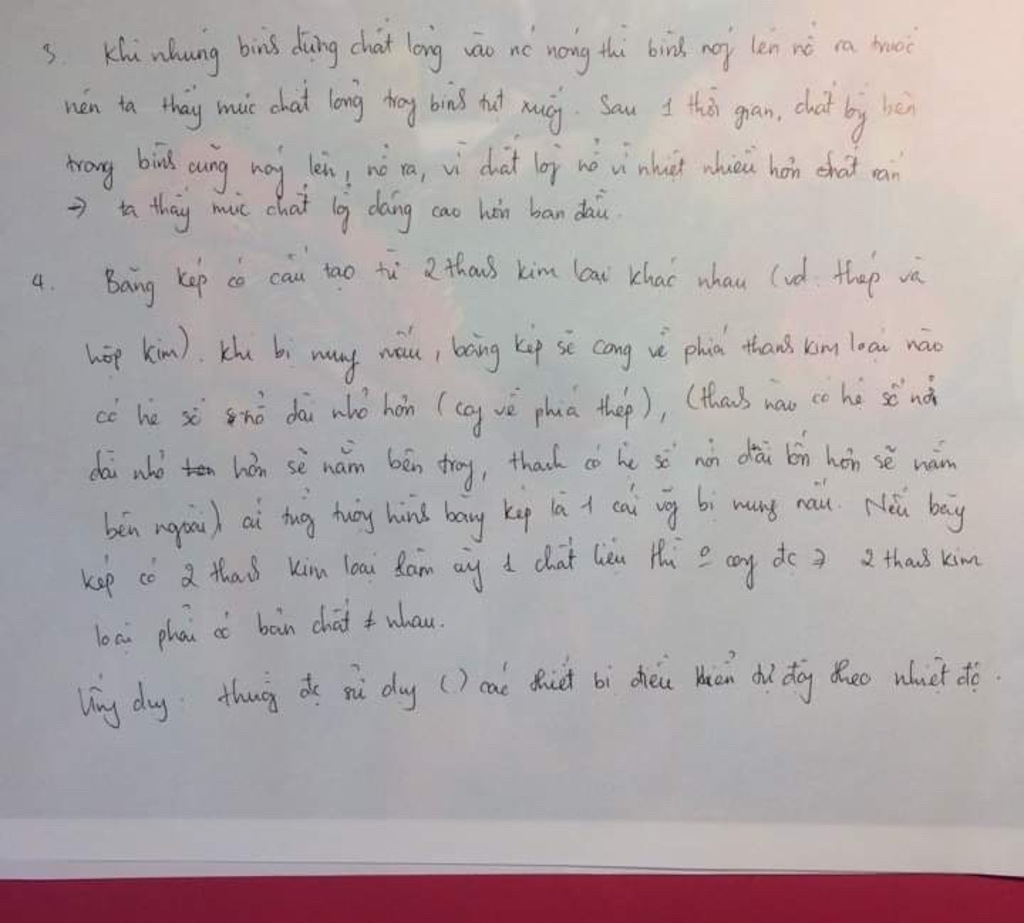 3. Khi nhúng bìnS đựng chất lỏng vào nc nóng thì bìnS nóg lên nở ra trước
nên ta thấy mực chất lỏng trog bìnS tụt xuốg. Sau 1 thời gian, chất lỏg bên
trong bìnS cũng nóg lên, nở ra, vì chất lỏg nở vì nhiệt nhiều hơn chất rắn
→ ta thấy mực chất lỏg dâng cao hơn ban đầu.
4. Băng kép có cấu tạo từ 2 thanS kim loại khác nhau (vd. thép và
hợp kim). Khi bị nung nấu, băng kép sẽ cong về phía thanS kim loại nào
có hệ số nở dài nhỏ hơn (cog về phía thép), (thanS nào có hệ số nở
dài nhỏ hơn sẽ nằm bên trog, thanh có hệ số nở dài lớn hơn sẽ nằm
bên ngoài) cứ tưởg tượg hìnS băng kép là 1 cái vòg bị nung nấu. Nếu băng
kép có 2 thanS kim loại làm từ 1 chất liệu thì o cog đc → 2 thanS kim
loại phải có bản chất ≠ nhau.
Ứng dụng: thườg đc sử dụg () các thiết bị điều khiển tự độg theo nhiệt độ.